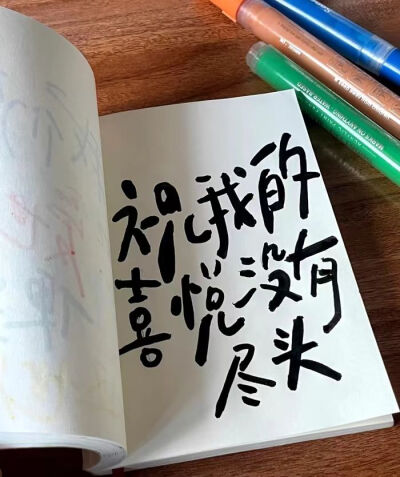 祝我的
喜悦没有
尽头